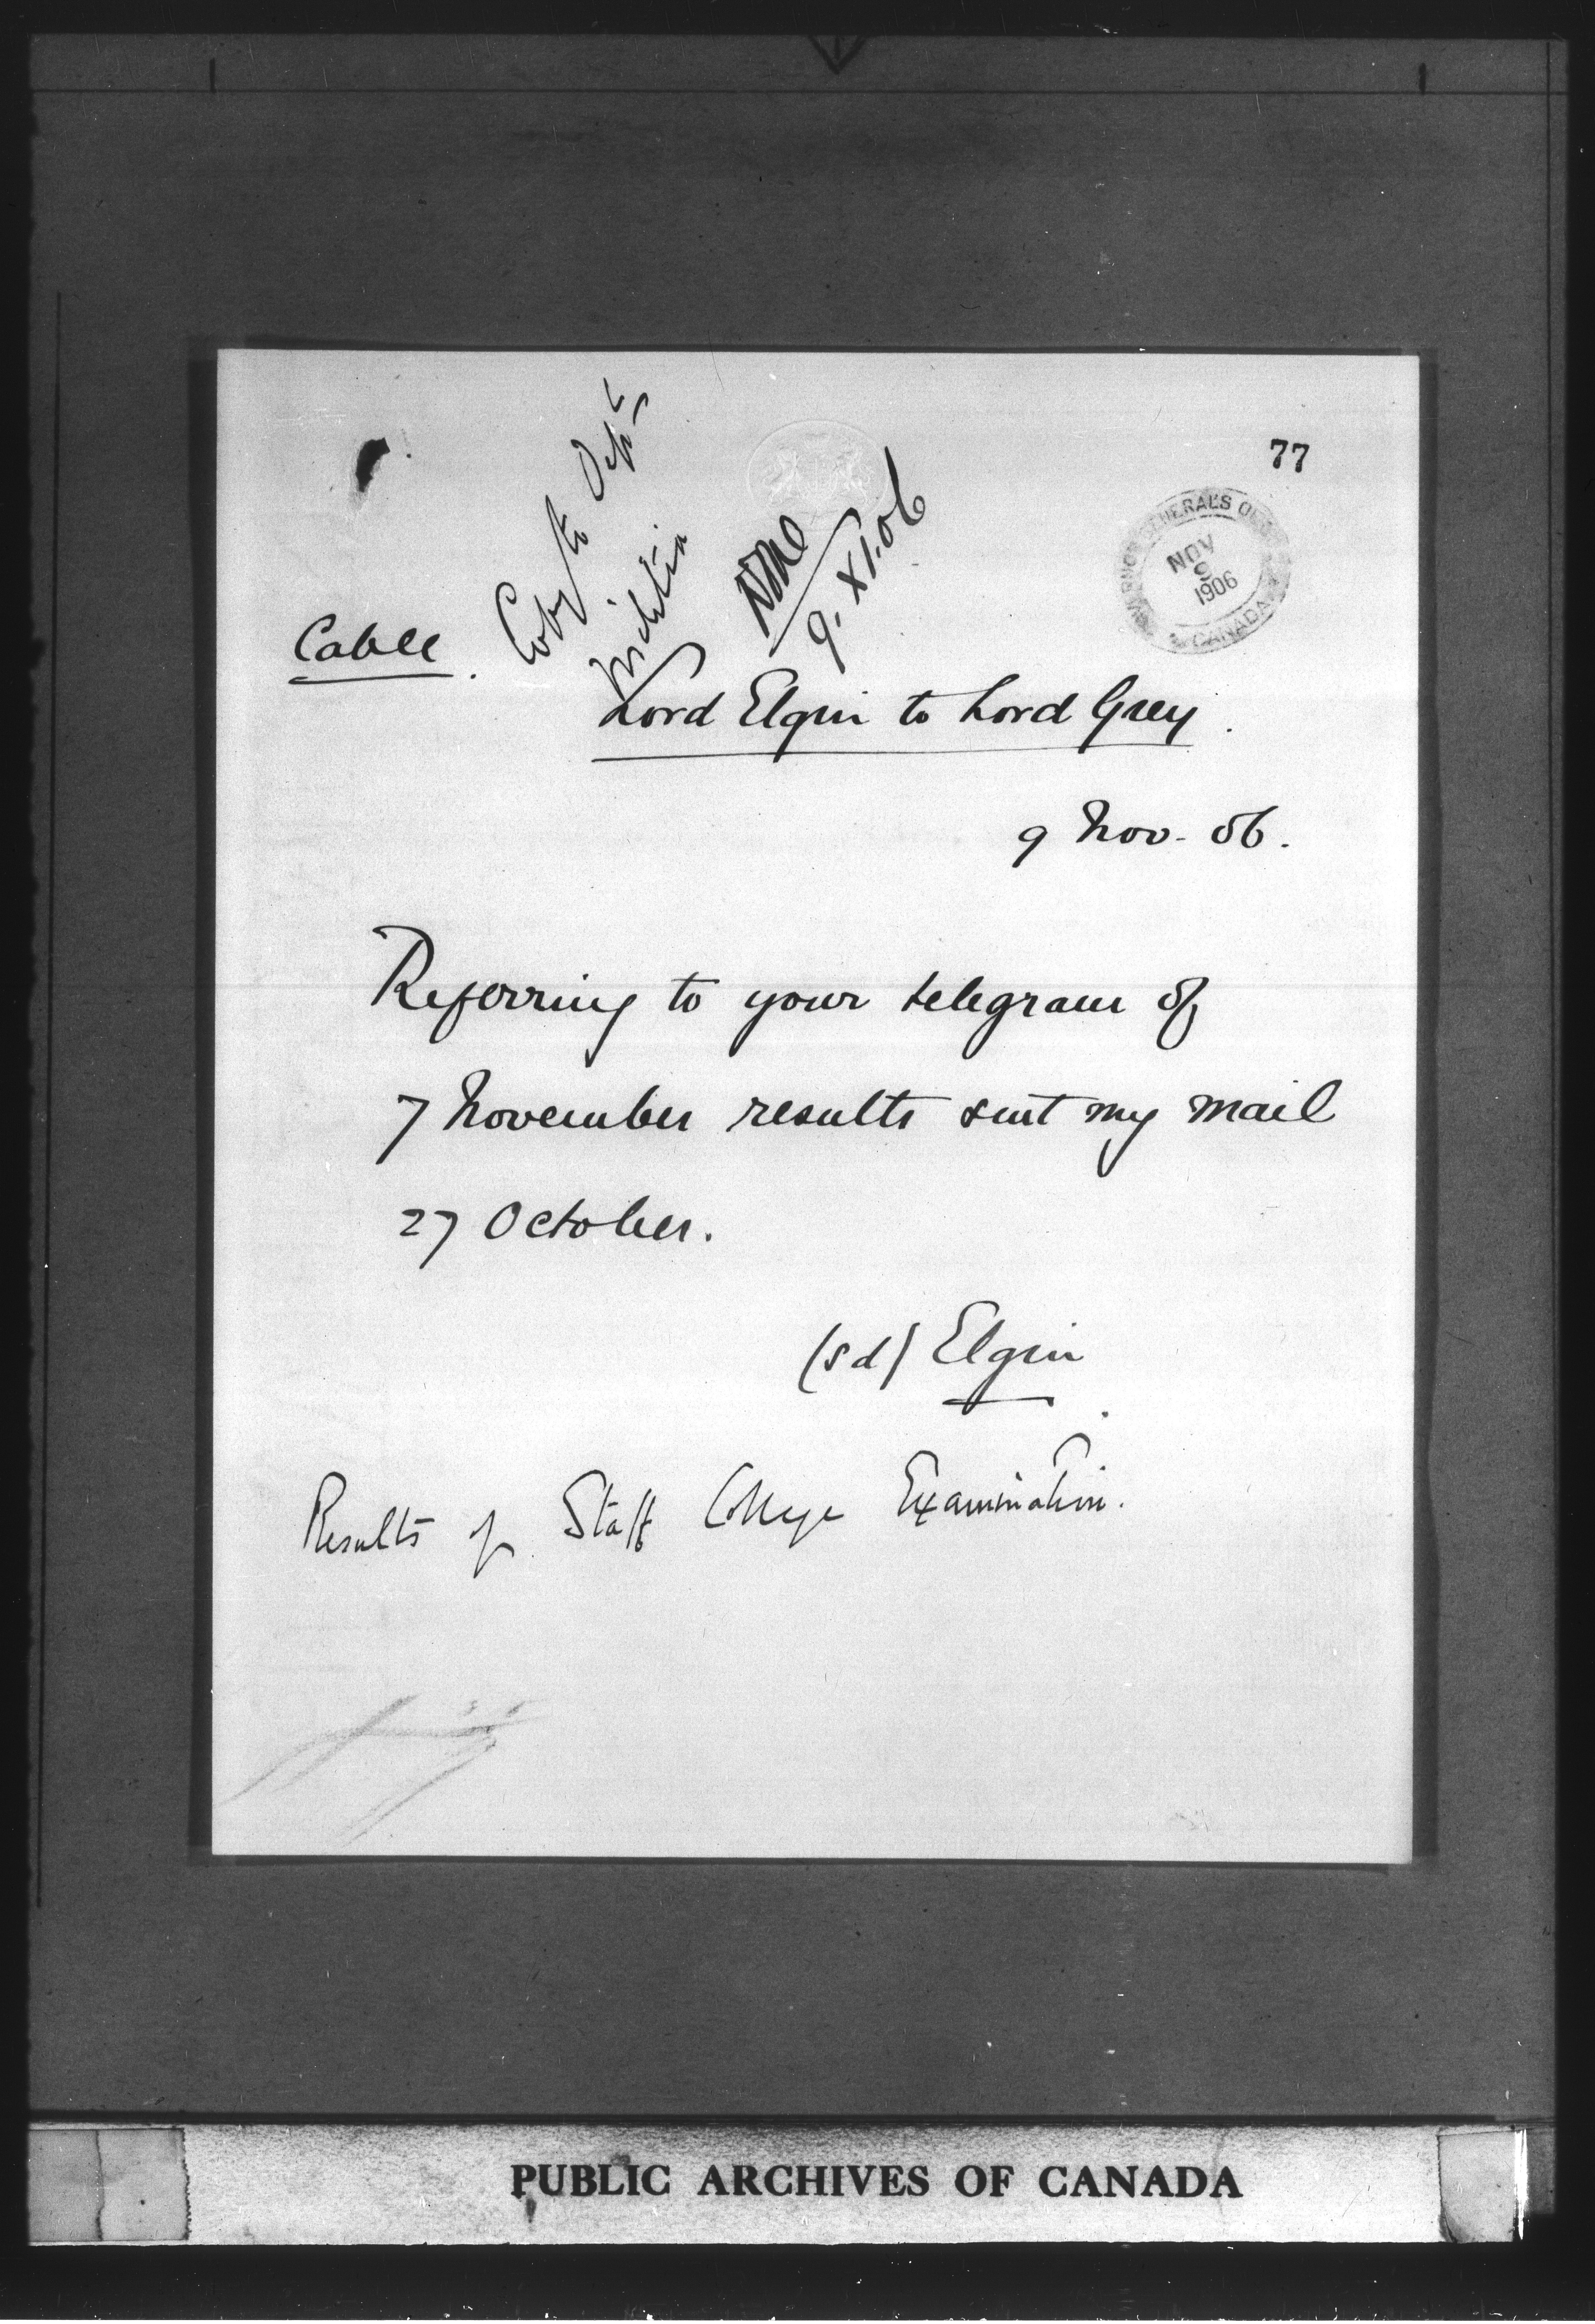 77
Copy to Dept
Militia
9.XI.06
GOVERNOR GENERAL'S OFFICE
NOV
9
1906
CANADA
Cable.
Lord Elgin to Lord Grey.
9 Nov. 06.
Referring to your telegram of
7 November results sent my mail
27 October.
(sd) Elgin
Results of Staff College Examination.
PUBLIC ARCHIVES OF CANADA